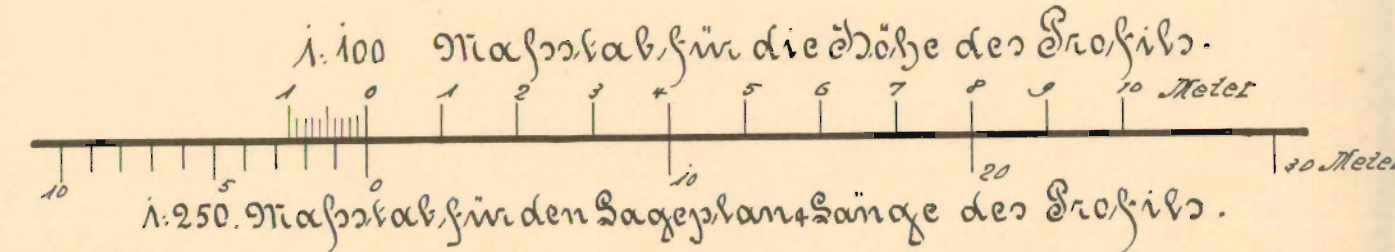 1:100 Maßstab für die Höhe des Profils.
1 0 1 2 3 4 5 6 7 8 9 10 Meter
10 5 0 10 20 30 Meter
1:250. Maßstab für den Lageplan + Länge des Profils.